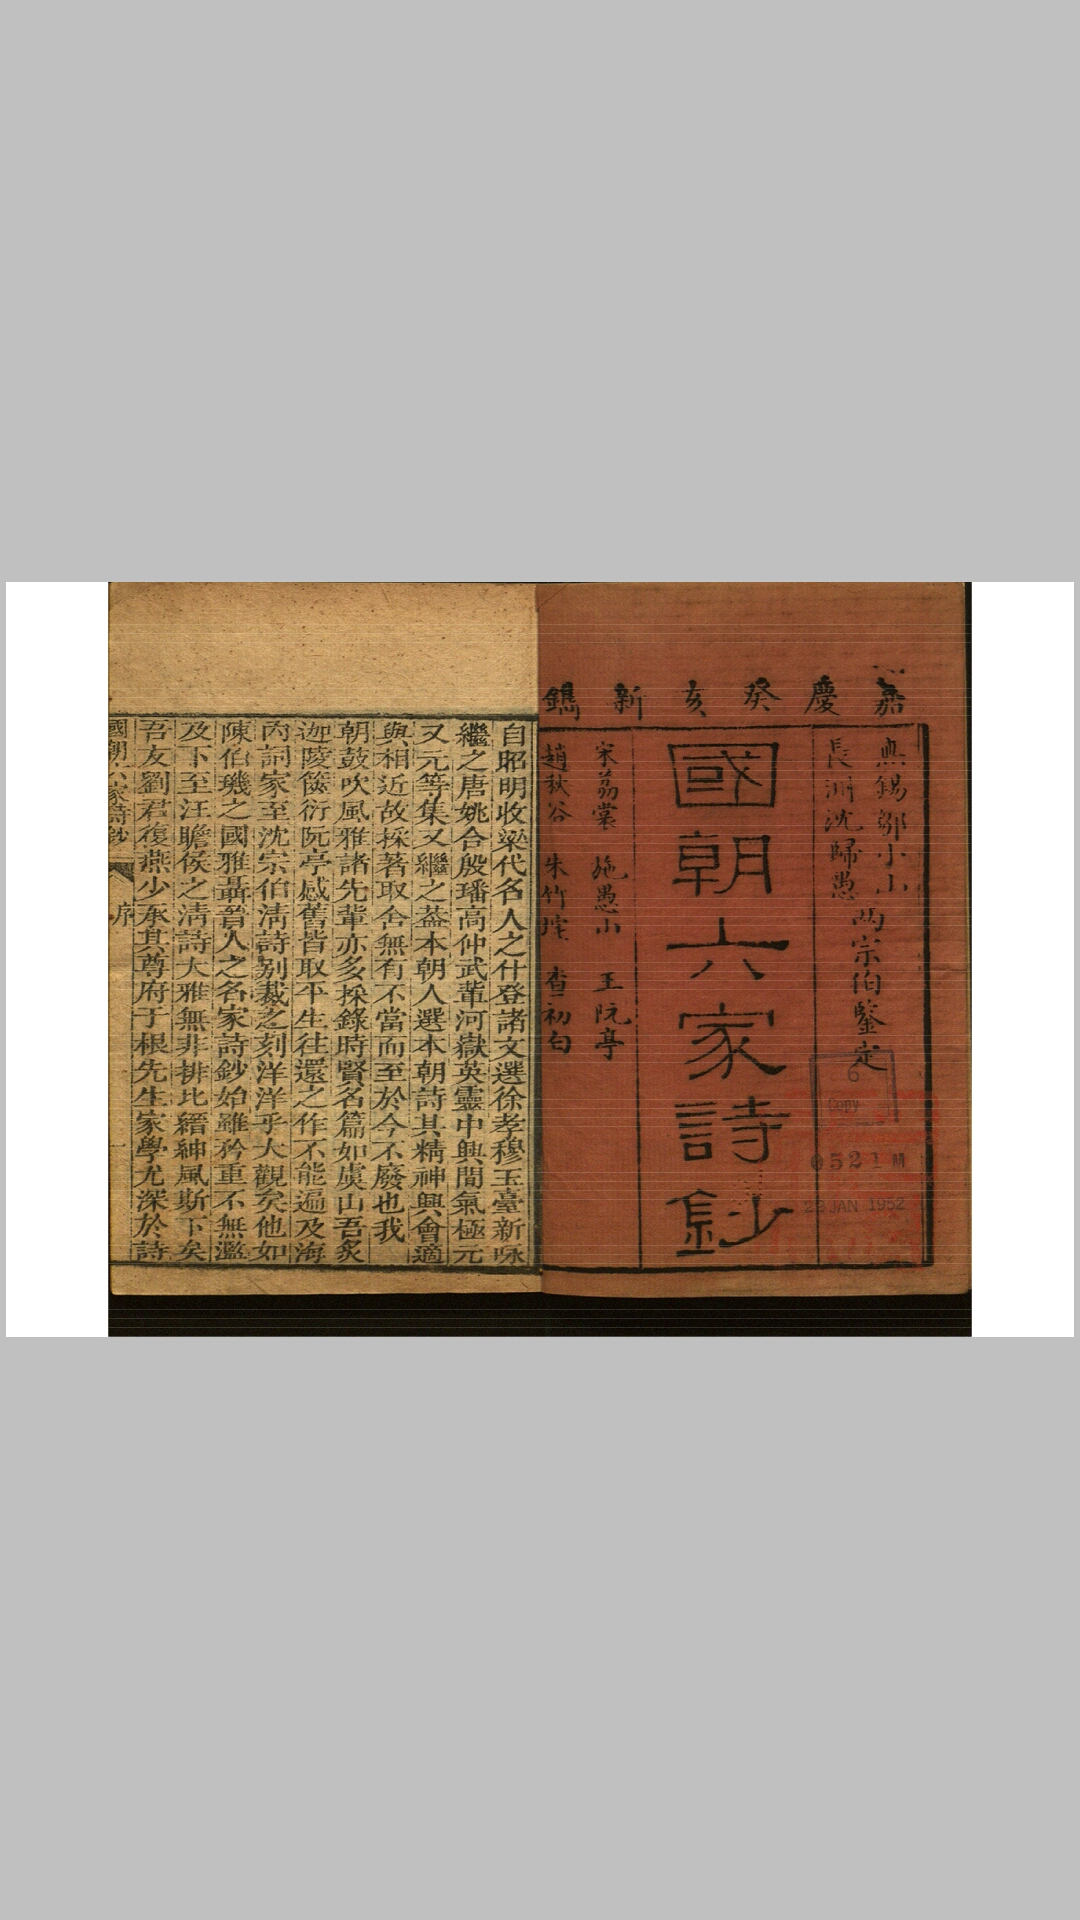 嘉慶癸亥新鐫
無錫鄒小山
長洲沈歸愚
兩宗伯鑒定
國朝六家詩鈔
宋荔裳 施愚山 王阮亭
趙秋谷 朱竹垞 查初白
6
Copy
0521
23 JAN 1952
自昭明收梁代名人之什登諸文選徐孝穆玉臺新咏
繼之唐姚合殷璠高仲武輩河嶽英靈中興間氣極元
又元等集又繼之蓋本朝人選本朝詩其精神興會適
與相近故採著取舍無有不當而至於今不廢也我
朝鼓吹風雅諸先輩亦多採錄時賢名篇如虞山吾炙
迦陵篋衍阮亭感舊皆取平生往還之作不能遍及海
內詞家至沈宗伯清詩別裁之刻洋洋乎大觀矣他如
陳伯璣之國雅聶晉人之名家詩鈔始雖矜重不無濫
及下至汪瞻侯之清詩大雅無非排比縉紳風斯下矣
吾友劉君復燕少承其尊府于根先生家學尤深於詩
國朝六家詩鈔 序 一